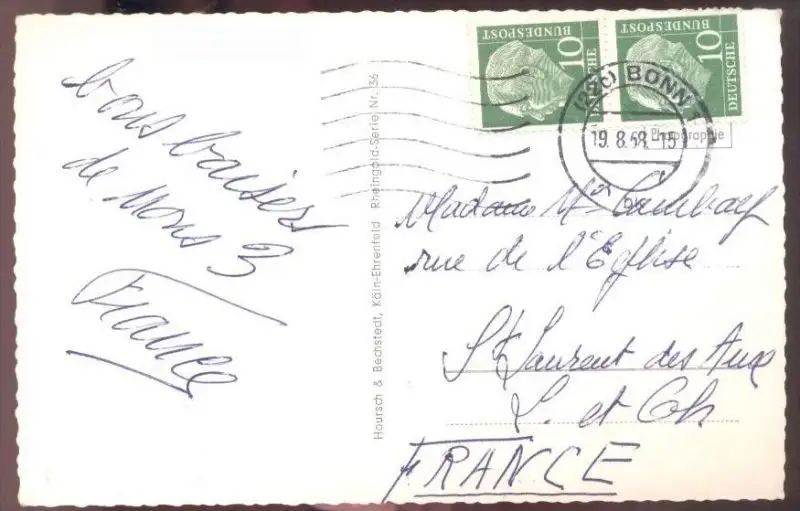 bons baisers
de nous 3
France
Hoursch & Bechstedt, Köln-Ehrenfeld Rheingold-Serie Nr. 36
10
DEUTSCHE
BUNDESPOST
10
DEUTSCHE
BUNDESPOST
(22c) BONN 1
19.8.58.-15
Photographie
Madame
rue de l'Eglise
St Laurent des Aux
L. et Ch.
FRANCE